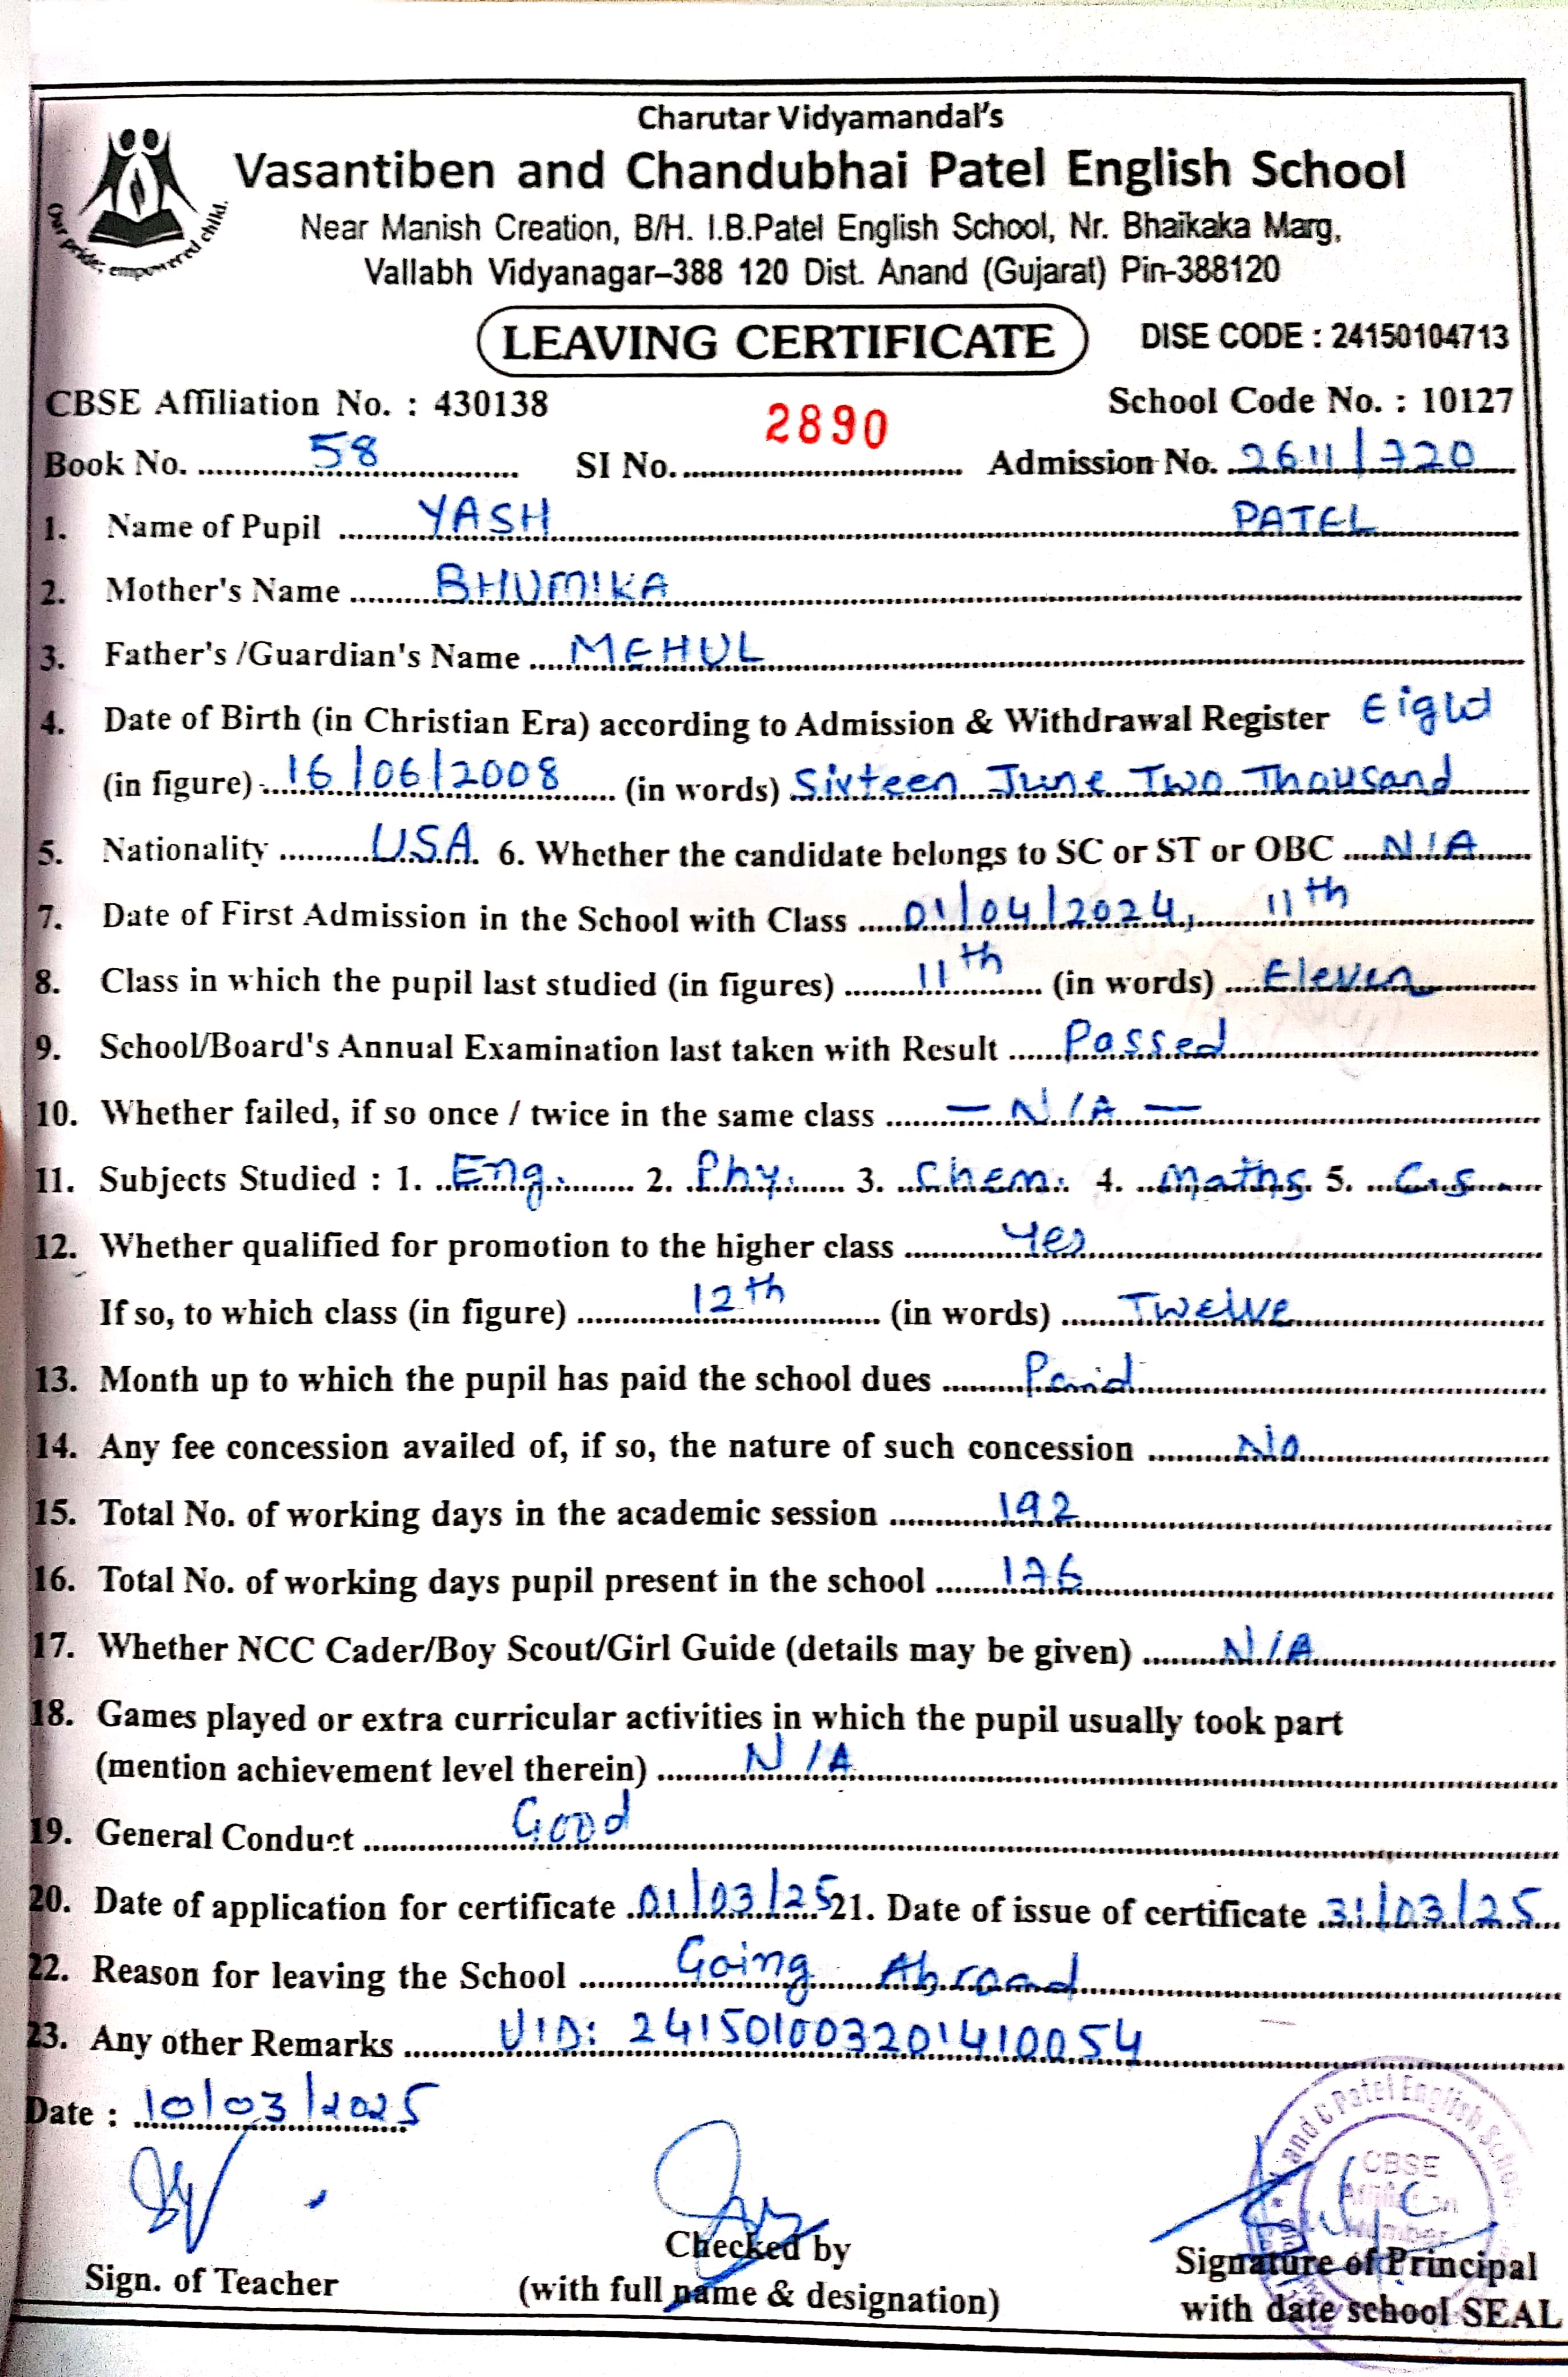 Charutar Vidyamandal's
Vasantiben and Chandubhai Patel English School
Our pride; empowered child.
Near Manish Creation, B/H. I.B.Patel English School, Nr. Bhaikaka Marg,
Vallabh Vidyanagar–388 120 Dist. Anand (Gujarat) Pin-388120
LEAVING CERTIFICATE DISE CODE : 24150104713
CBSE Affiliation No. : 430138 School Code No. : 10127
Book No. 58 SI No. 2890 Admission No. 2611/720
1. Name of Pupil YASH PATEL
2. Mother's Name BHUMIKA
3. Father's /Guardian's Name MEHUL
4. Date of Birth (in Christian Era) according to Admission & Withdrawal Register Eight
(in figure) 16/06/2008 (in words) Sixteen June Two Thousand
5. Nationality USA 6. Whether the candidate belongs to SC or ST or OBC N/A
7. Date of First Admission in the School with Class 01/04/2024, 11th
8. Class in which the pupil last studied (in figures) 11th (in words) Eleven
9. School/Board's Annual Examination last taken with Result Passed
10. Whether failed, if so once / twice in the same class — N/A —
11. Subjects Studied : 1. Eng. 2. Phy. 3. Chem. 4. Maths 5. C.S
12. Whether qualified for promotion to the higher class Yes
If so, to which class (in figure) 12th (in words) Twelve
13. Month up to which the pupil has paid the school dues Paid
14. Any fee concession availed of, if so, the nature of such concession No
15. Total No. of working days in the academic session 192
16. Total No. of working days pupil present in the school 176
17. Whether NCC Cader/Boy Scout/Girl Guide (details may be given) N/A
18. Games played or extra curricular activities in which the pupil usually took part
(mention achievement level therein) N/A
19. General Conduct Good
20. Date of application for certificate 01/03/25 21. Date of issue of certificate 31/03/25
22. Reason for leaving the School Going Abroad
23. Any other Remarks UID: 241501003201410054
Date : 10/03/2025
and C Patel English School
CBSE
Affiliation
Number
Sign. of Teacher
Checked by
(with full name & designation)
Signature of Principal
with date school SEAL